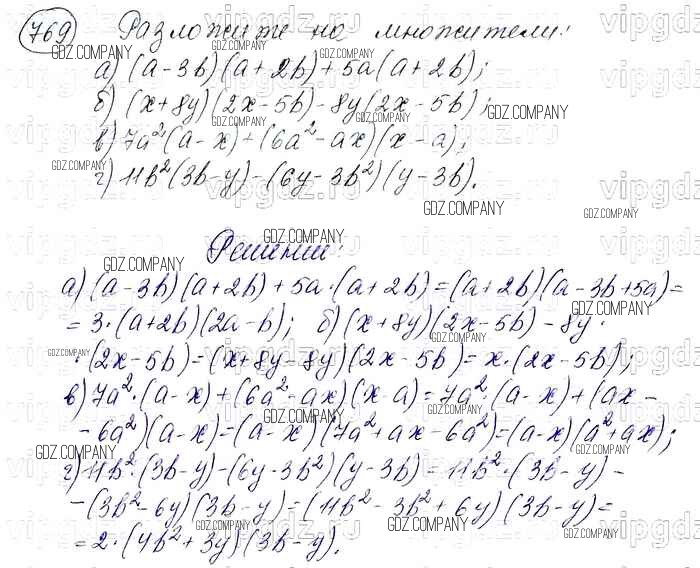 769 Разложите на множители:
а) (a-3b)(a+2b)+5a(a+2b);
б) (x+8y)(2x-5b)-8y(2x-5b);
в) 7a²(a-x)+(6a²-ax)(x-a);
г) 11b²(3b-y)-(6y-3b²)(y-3b).
Решение:
а) (a-3b)(a+2b)+5a·(a+2b)=(a+2b)(a-3b+5a)=
=3·(a+2b)(2a-b); б) (x+8y)(2x-5b)-8y·
·(2x-5b)=(x+8y-8y)(2x-5b)=x·(2x-5b);
в) 7a²·(a-x)+(6a²-ax)(x-a)=7a²·(a-x)+(ax-
-6a²)(a-x)=(a-x)(7a²+ax-6a²)=(a-x)(a²+ax);
г) 11b²·(3b-y)-(6y-3b²)(y-3b)=11b²·(3b-y)-
-(3b²-6y)(3b-y)=(11b²-3b²+6y)(3b-y)=
=2·(4b²+3y)(3b-y).